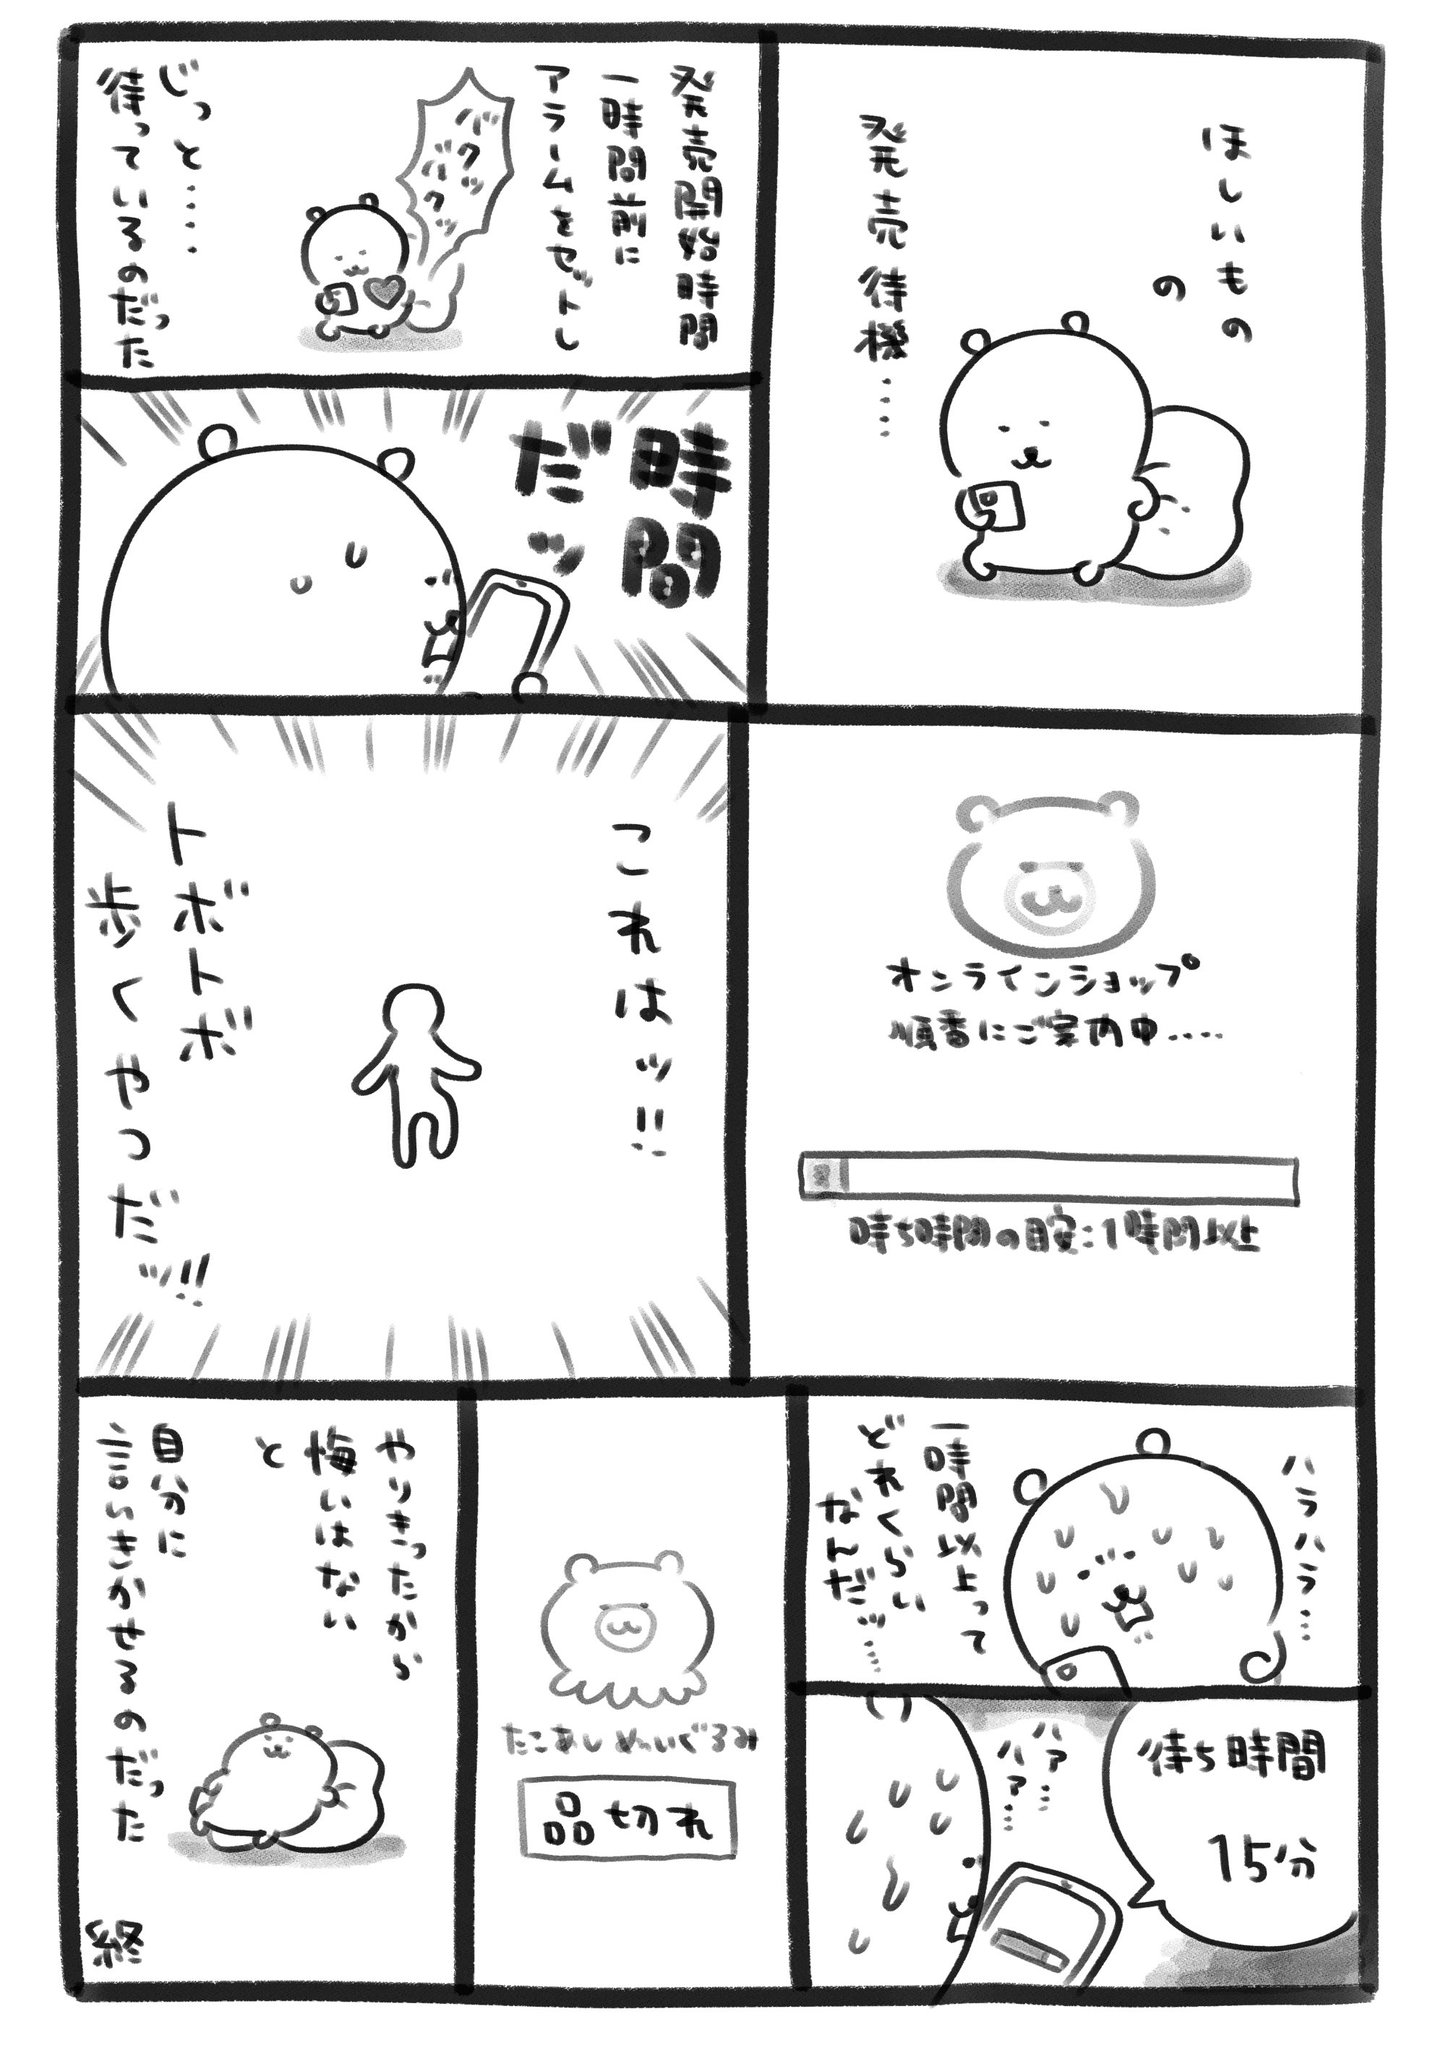 ほしいもの
の
発売待機……
発売開始時間
一時間前に
アラームをセットし
バクッ
バクッ
じっと……
待っているのだった
時間
だッ
オンラインショップ
順番にご案内中……
時ち時間の目安：1時間以上
これはッ!!
トボトボ
歩くやつだッ!!
ハラハラ…
一時間以上って
どれくらい
なんだッ……
待ち時間
15分
ハァ…
ハァ…
たこあしぬいぐるみ
品切れ
やりきったから
悔いはない
と
自分に
言いきかせるのだった
終